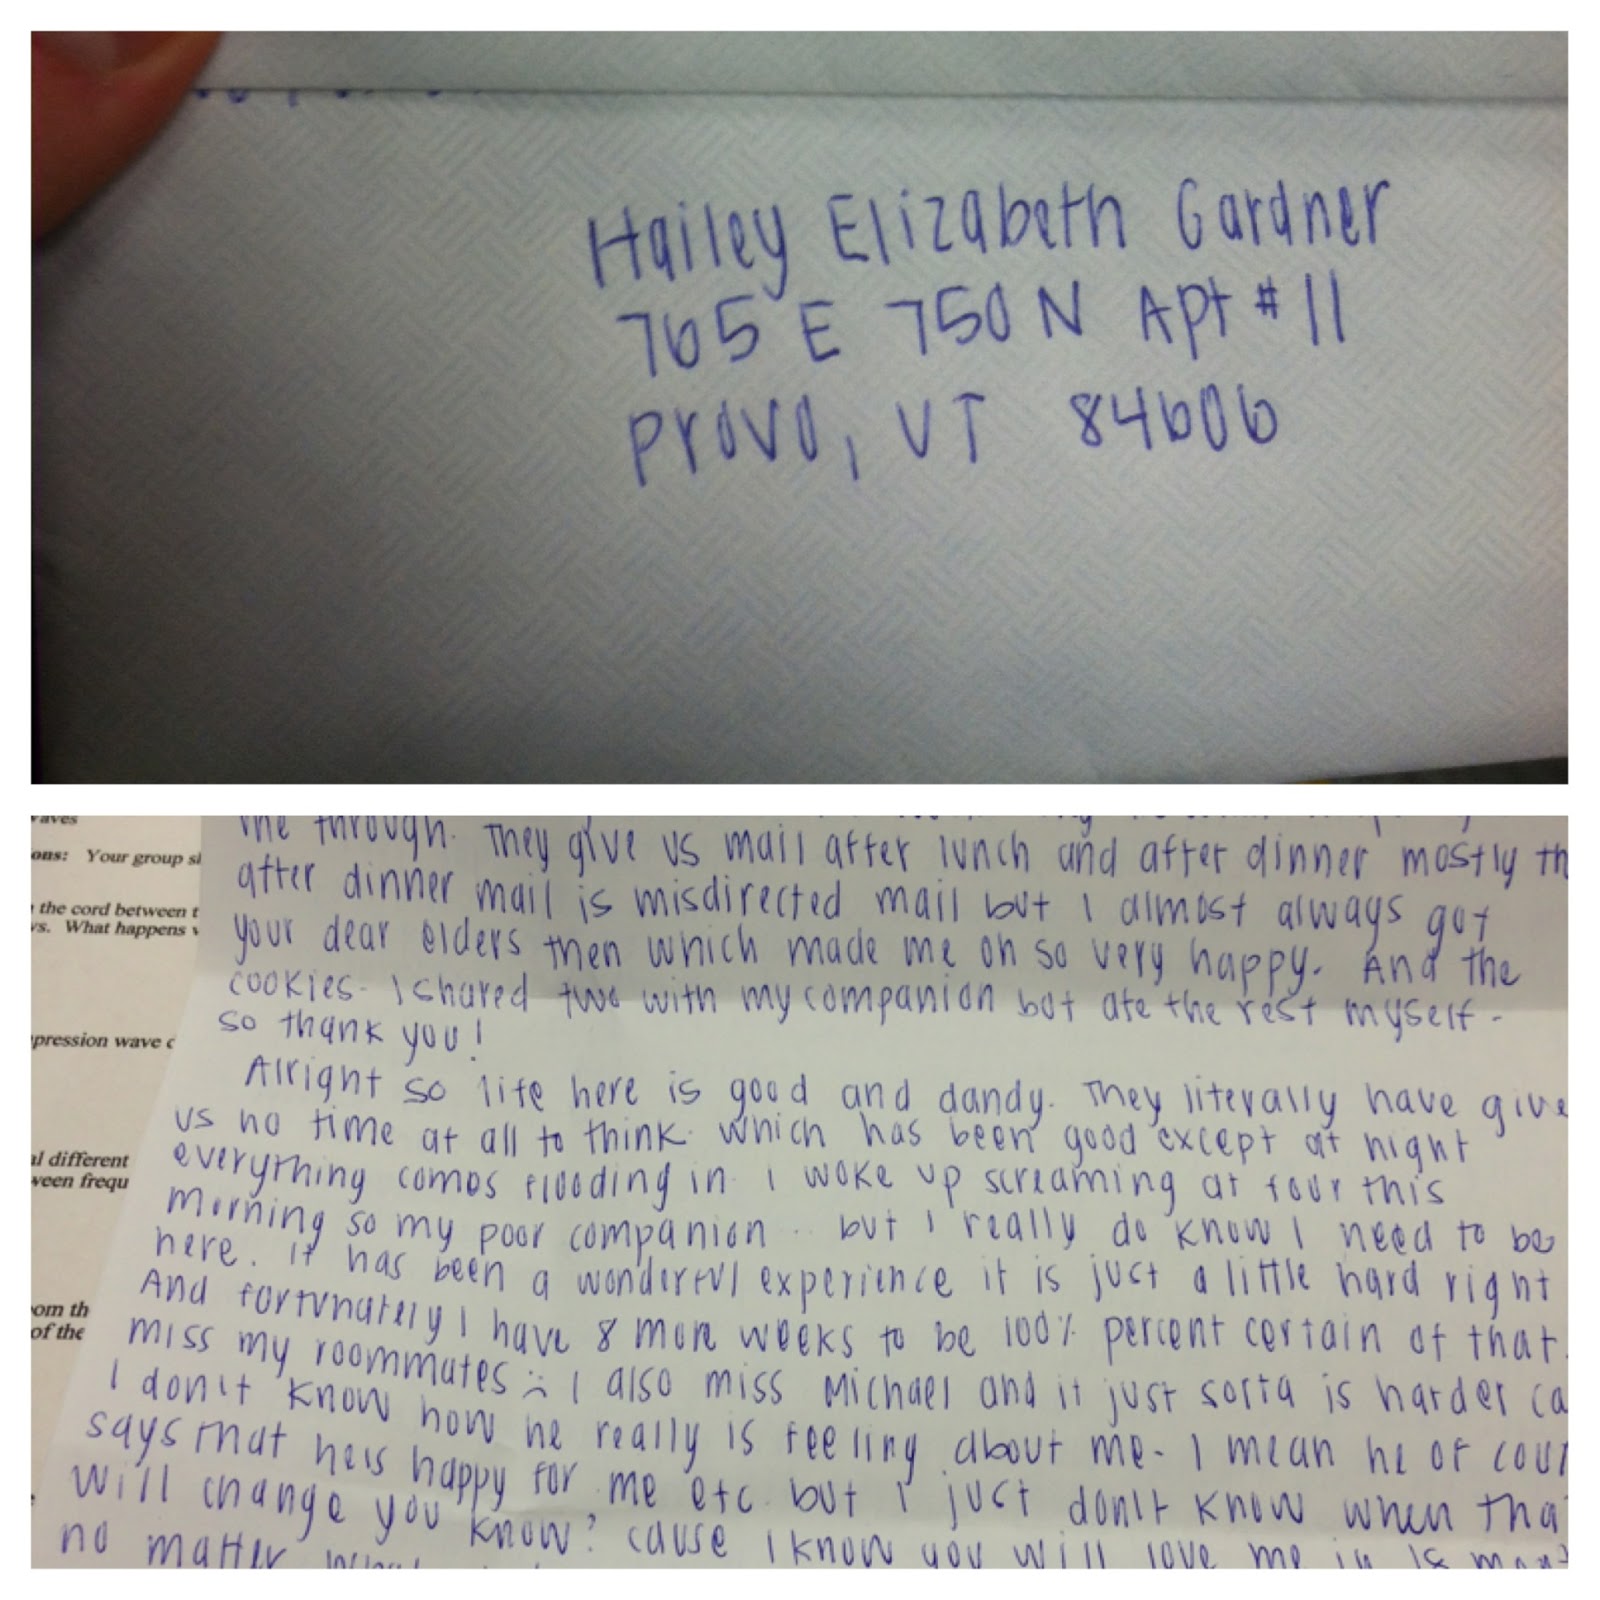 Hailey Elizabeth Gardner
765 E 750 N Apt #11
Provo, UT 84606
me through. They give us mail after lunch and after dinner mostly th
after dinner mail is misdirected mail but I almost always got
your dear elders then which made me oh so very happy. And the
cookies. I shared two with my companion but ate the rest myself.
so thank you!
Alright so life here is good and dandy. They literally have give
us no time at all to think. which has been good except at night
everything comes flooding in. I woke up screaming at four this
morning so my poor companion.. but I really do know I need to be
here. It has been a wonderful experience it is just a little hard right
And fortunately I have 8 more weeks to be 100% percent certain of that.
miss my roommates :( I also miss Michael and it just sorta is harder ca
I don't know how he really is feeling about me. I mean he of cour
says that he is happy for me etc. but I just don't know when tha
will change you know? cause I know you will love me in 18 mon
no matter what
aves
ons: Your group sl
the cord between t
vs. What happens
pression wave c
al different
ween frequ
om th
of the